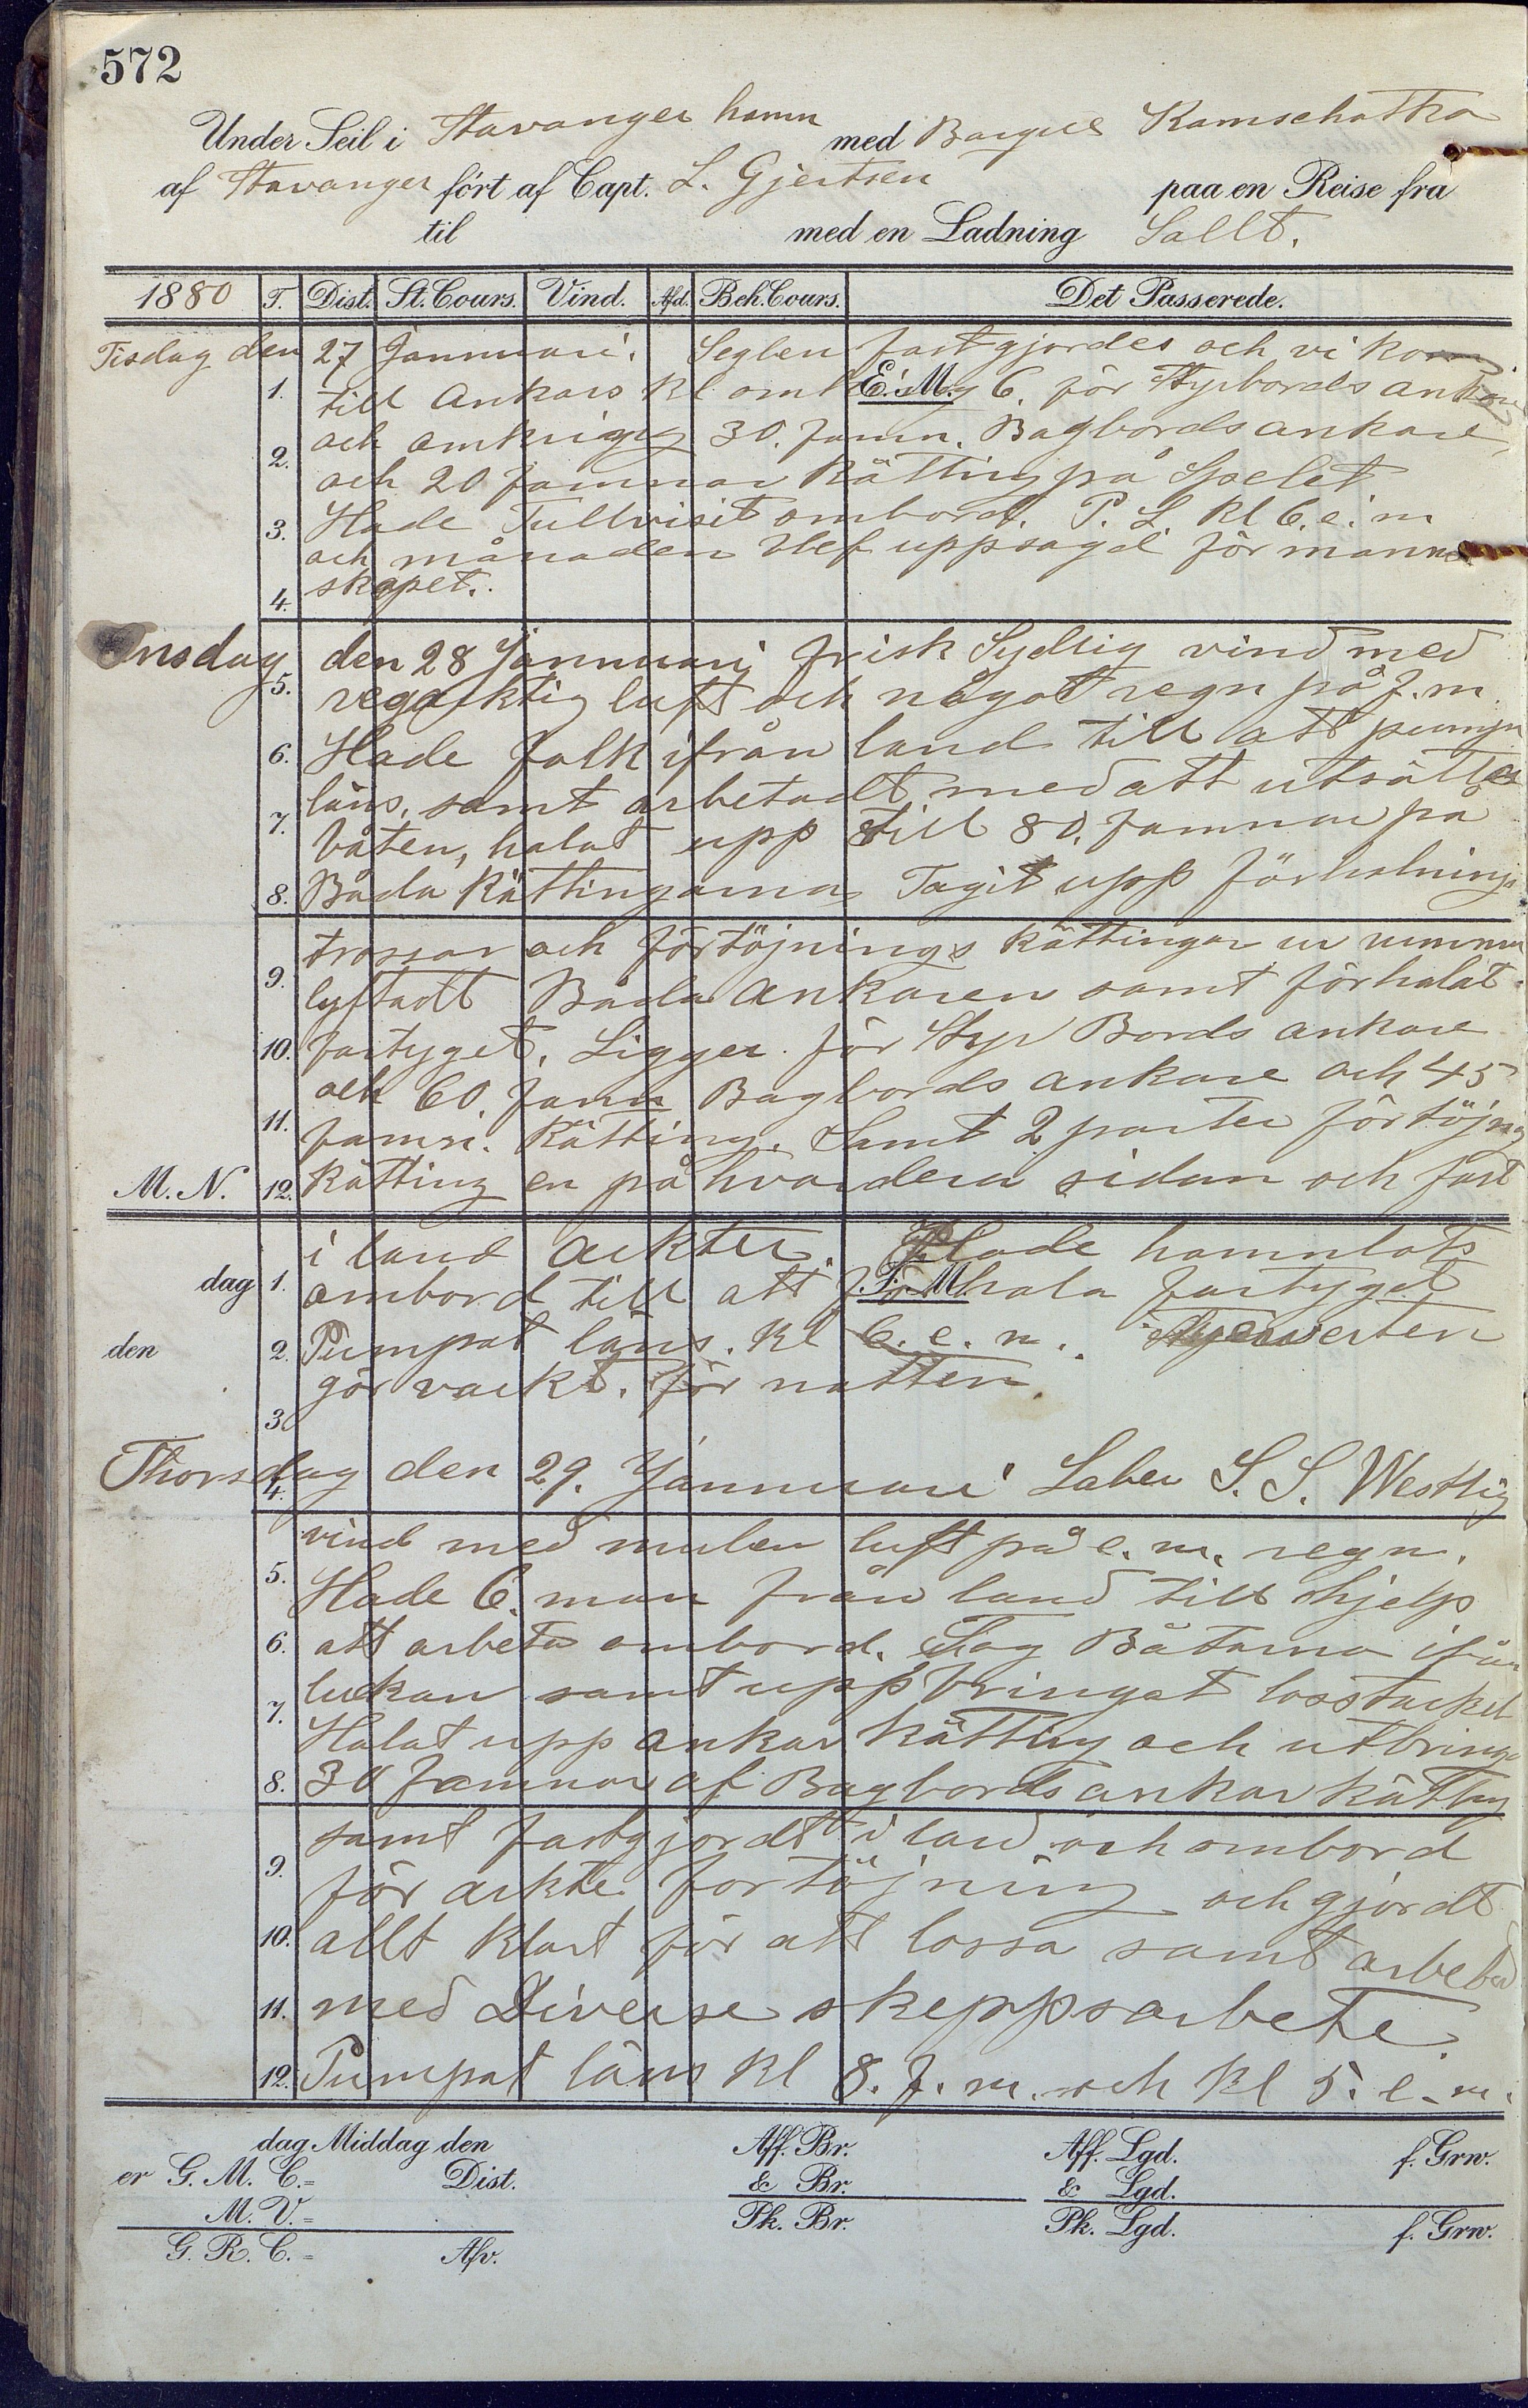 572
Under Seil i Stavanger hamn med Barque Kamschatka
af Stavanger fört af Capt. L. Gjertsen paa en Reise fra
til med en Ladning Sallt.
1880 T. Dist. St. Cours. Vind. Afd. Beh. Cours. Det Passerede.
Tisdag den 27 Januari. Seglen fastgjordes och vi kom
1. till Ankars Kl omkring 6. för Styrbords ankare
E. M.
2. och omkring 30. famn. Bagbords ankare
och 20 famnar Kätting på Spelet
3. Hade Tullvisit ombord. P. L. Kl 6. e. m
och månaden blef uppsagd för mann
4. skapet.
Onsdag den 28 Januari frisk Sydlig vind med
5. regnaktig luft och något regn på f. m.
6. Hade folk ifrån land till att pumpa
läns, samt arbetadt med att utsätta
7. båten, halat upp till 80. famnar på
8. Båda Kättingarna Tagit upp förhalnings
trossar och förtöjnings Kättingar ur rummen
9. lyftadt Båda Ankaren samt förhalat
10. fartyget. Ligger för Styr Bords ankare
och 60. famn Bagbords ankare och 45
11. famn. Kätting. Samt 2 parter förtöjng
M. N. 12. Kätting en på hvardera sidan och fast
i land ackter. Hade hamnlots
dag 1. ombord till att förhala fartyget
F. M.
den 2. Pumpat läns. Kl 6. e. m.
gör vackt. för natten.
3.
Thorsdag den 29. Januari Laber S. S. Westlig
4.
vind med mulen luft på e. m. regn.
5. Hade 6. man från land till hjelp
6. att arbeta ombord. Tog Båtarna ifrån
luckan samt uppbringat losstackel
7. Halat upp ankar Kätting och utbringa
8. 30 famnar af Bagbords ankar Kätting
samt fastgjordt i land och ombord
9. för ackter förtöjning och gjordt
10. allt Klart för att lossa samt arbetad
11. med Diverse skeppsarbete.
12. Pumpat läns Kl 8. f. m. och Kl 5. e. m.
dag Middag den Aff. Br. Aff. Lgd. f. Grw.
er G. M. C. = Dist. & Br. & Lgd.
M. V. = Pk. Br. Pk. Lgd. f. Grw.
G. R. C. = Afv.